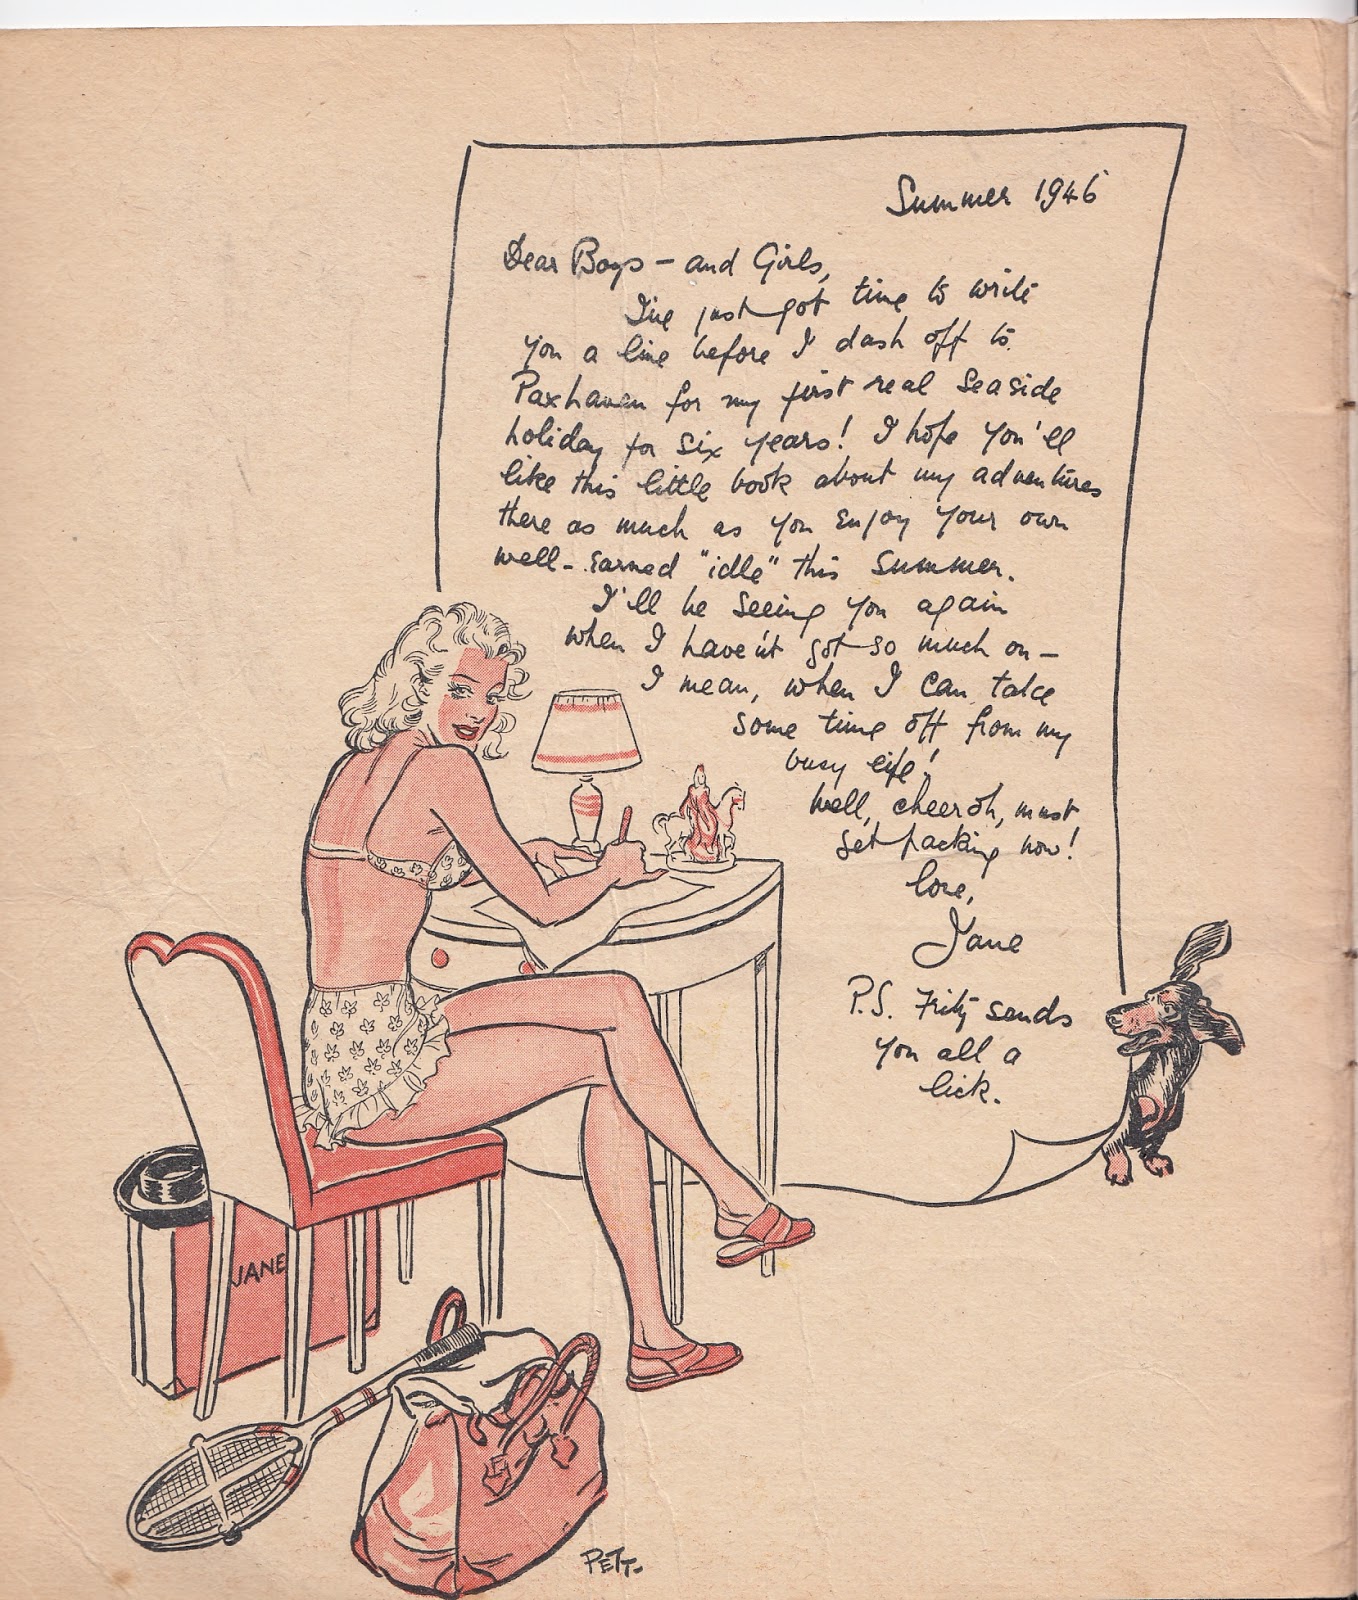 Summer 1946
Dear Boys - and Girls,
I've just got time to write
you a line before I dash off to
Paxhaven for my first real seaside
holiday for six years! I hope you'll
like this little book about my adventures
there as much as you enjoy your own
well-earned "idle" this summer.
I'll be seeing you again
when I have'nt got so much on -
I mean, when I can take
some time off from my
busy life!
Well, cheeroh, must
get packing now!
love,
Jane
P.S. Fritz sends
you all a
lick.
JANE
PETT.